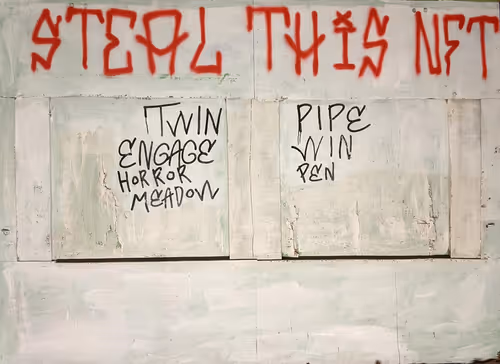 STEAL THIS NFT
TWIN
ENGAGE
HORROR
MEADOW
PIPE
WIN
PEN